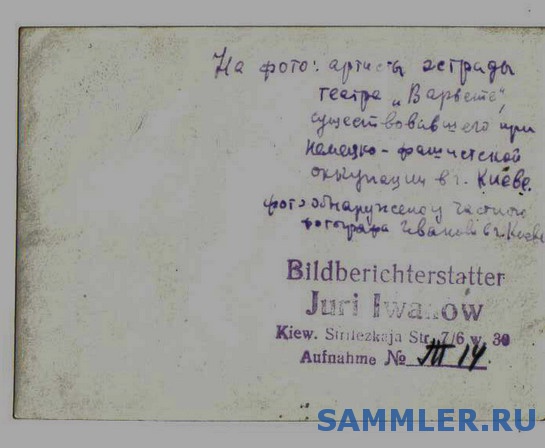 На фото: артисты эстрады
театра „Варьете",
существовавшего при
немецко-фашистской
оккупации в г. Киеве.
фото обнаружено у частного
фотографа Иванова в г. Киеве
Bildberichterstatter
Juri Iwanow
Kiew. Strilezkaja Str. 7/6 w. 30
Aufnahme № 14
SAMMLER.RU